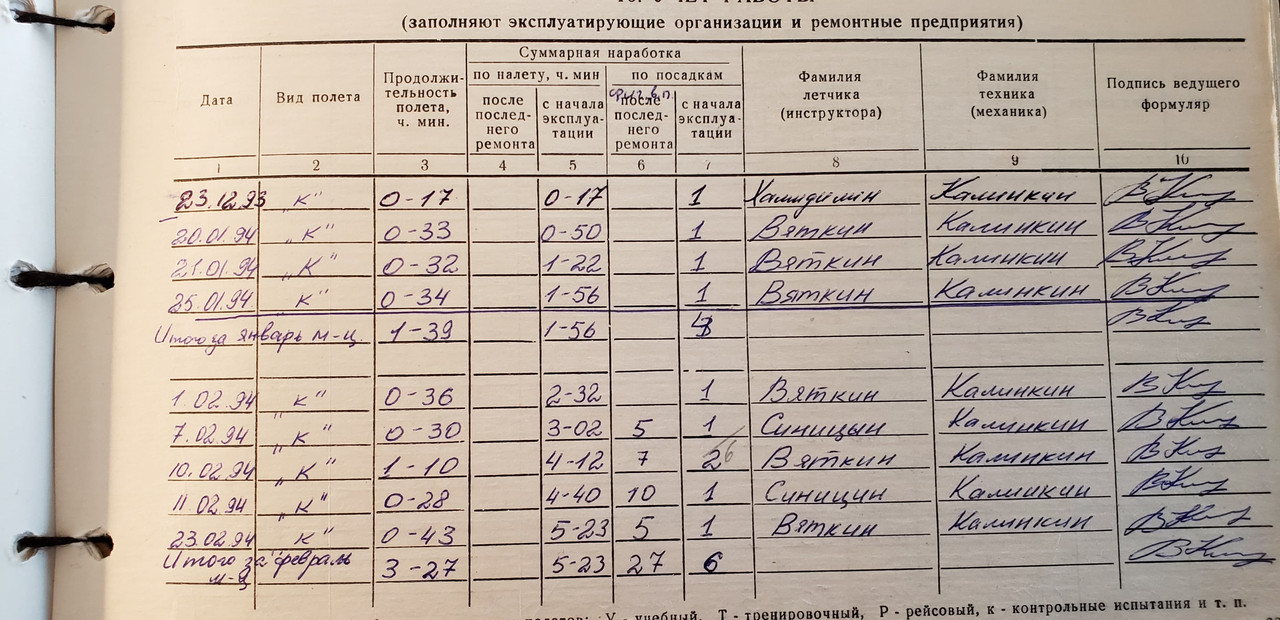 10. УЧЕТ РАБОТЫ
(заполняют эксплуатирующие организации и ремонтные предприятия)
Дата Вид полета Продолжительность полета, ч. мин. Суммарная наработка Фамилия летчика (инструктора) Фамилия техника (механика) Подпись ведущего формуляр
по налету, ч. мин по посадкам
после последнего ремонта с начала эксплуатации после последнего ремонта с начала эксплуатации
1 2 3 4 5 6 7 8 9 10
23.12.93 „К" 0-17 0-17 1 Калинкин
20.01.94 „К" 0-33 0-50 1 Вяткин Калинкин
21.01.94 „К" 0-32 1-22 1 Вяткин Калинкин
25.01.94 „К" 0-34 1-56 1 Вяткин Калинкин
Итого за январь м-ц. 1-39 1-56
1.02.94 „К" 0-36 2-32 1 Вяткин Калинкин
7.02.94 „К" 0-30 3-02 5 1 Синицын Калинкин
10.02.94 „К" 1-10 4-12 7 2 6 Вяткин Калинкин
11.02.94 „К" 0-28 4-40 10 1 Синицин Калинкин
23.02.94 „К" 0-43 5-23 5 1 Вяткин Калинкин
Итого за февраль м-ц 3-27 5-23 27 6
У - учебный, Т - тренировочный, Р - рейсовый, к - контрольные испытания и т. п.